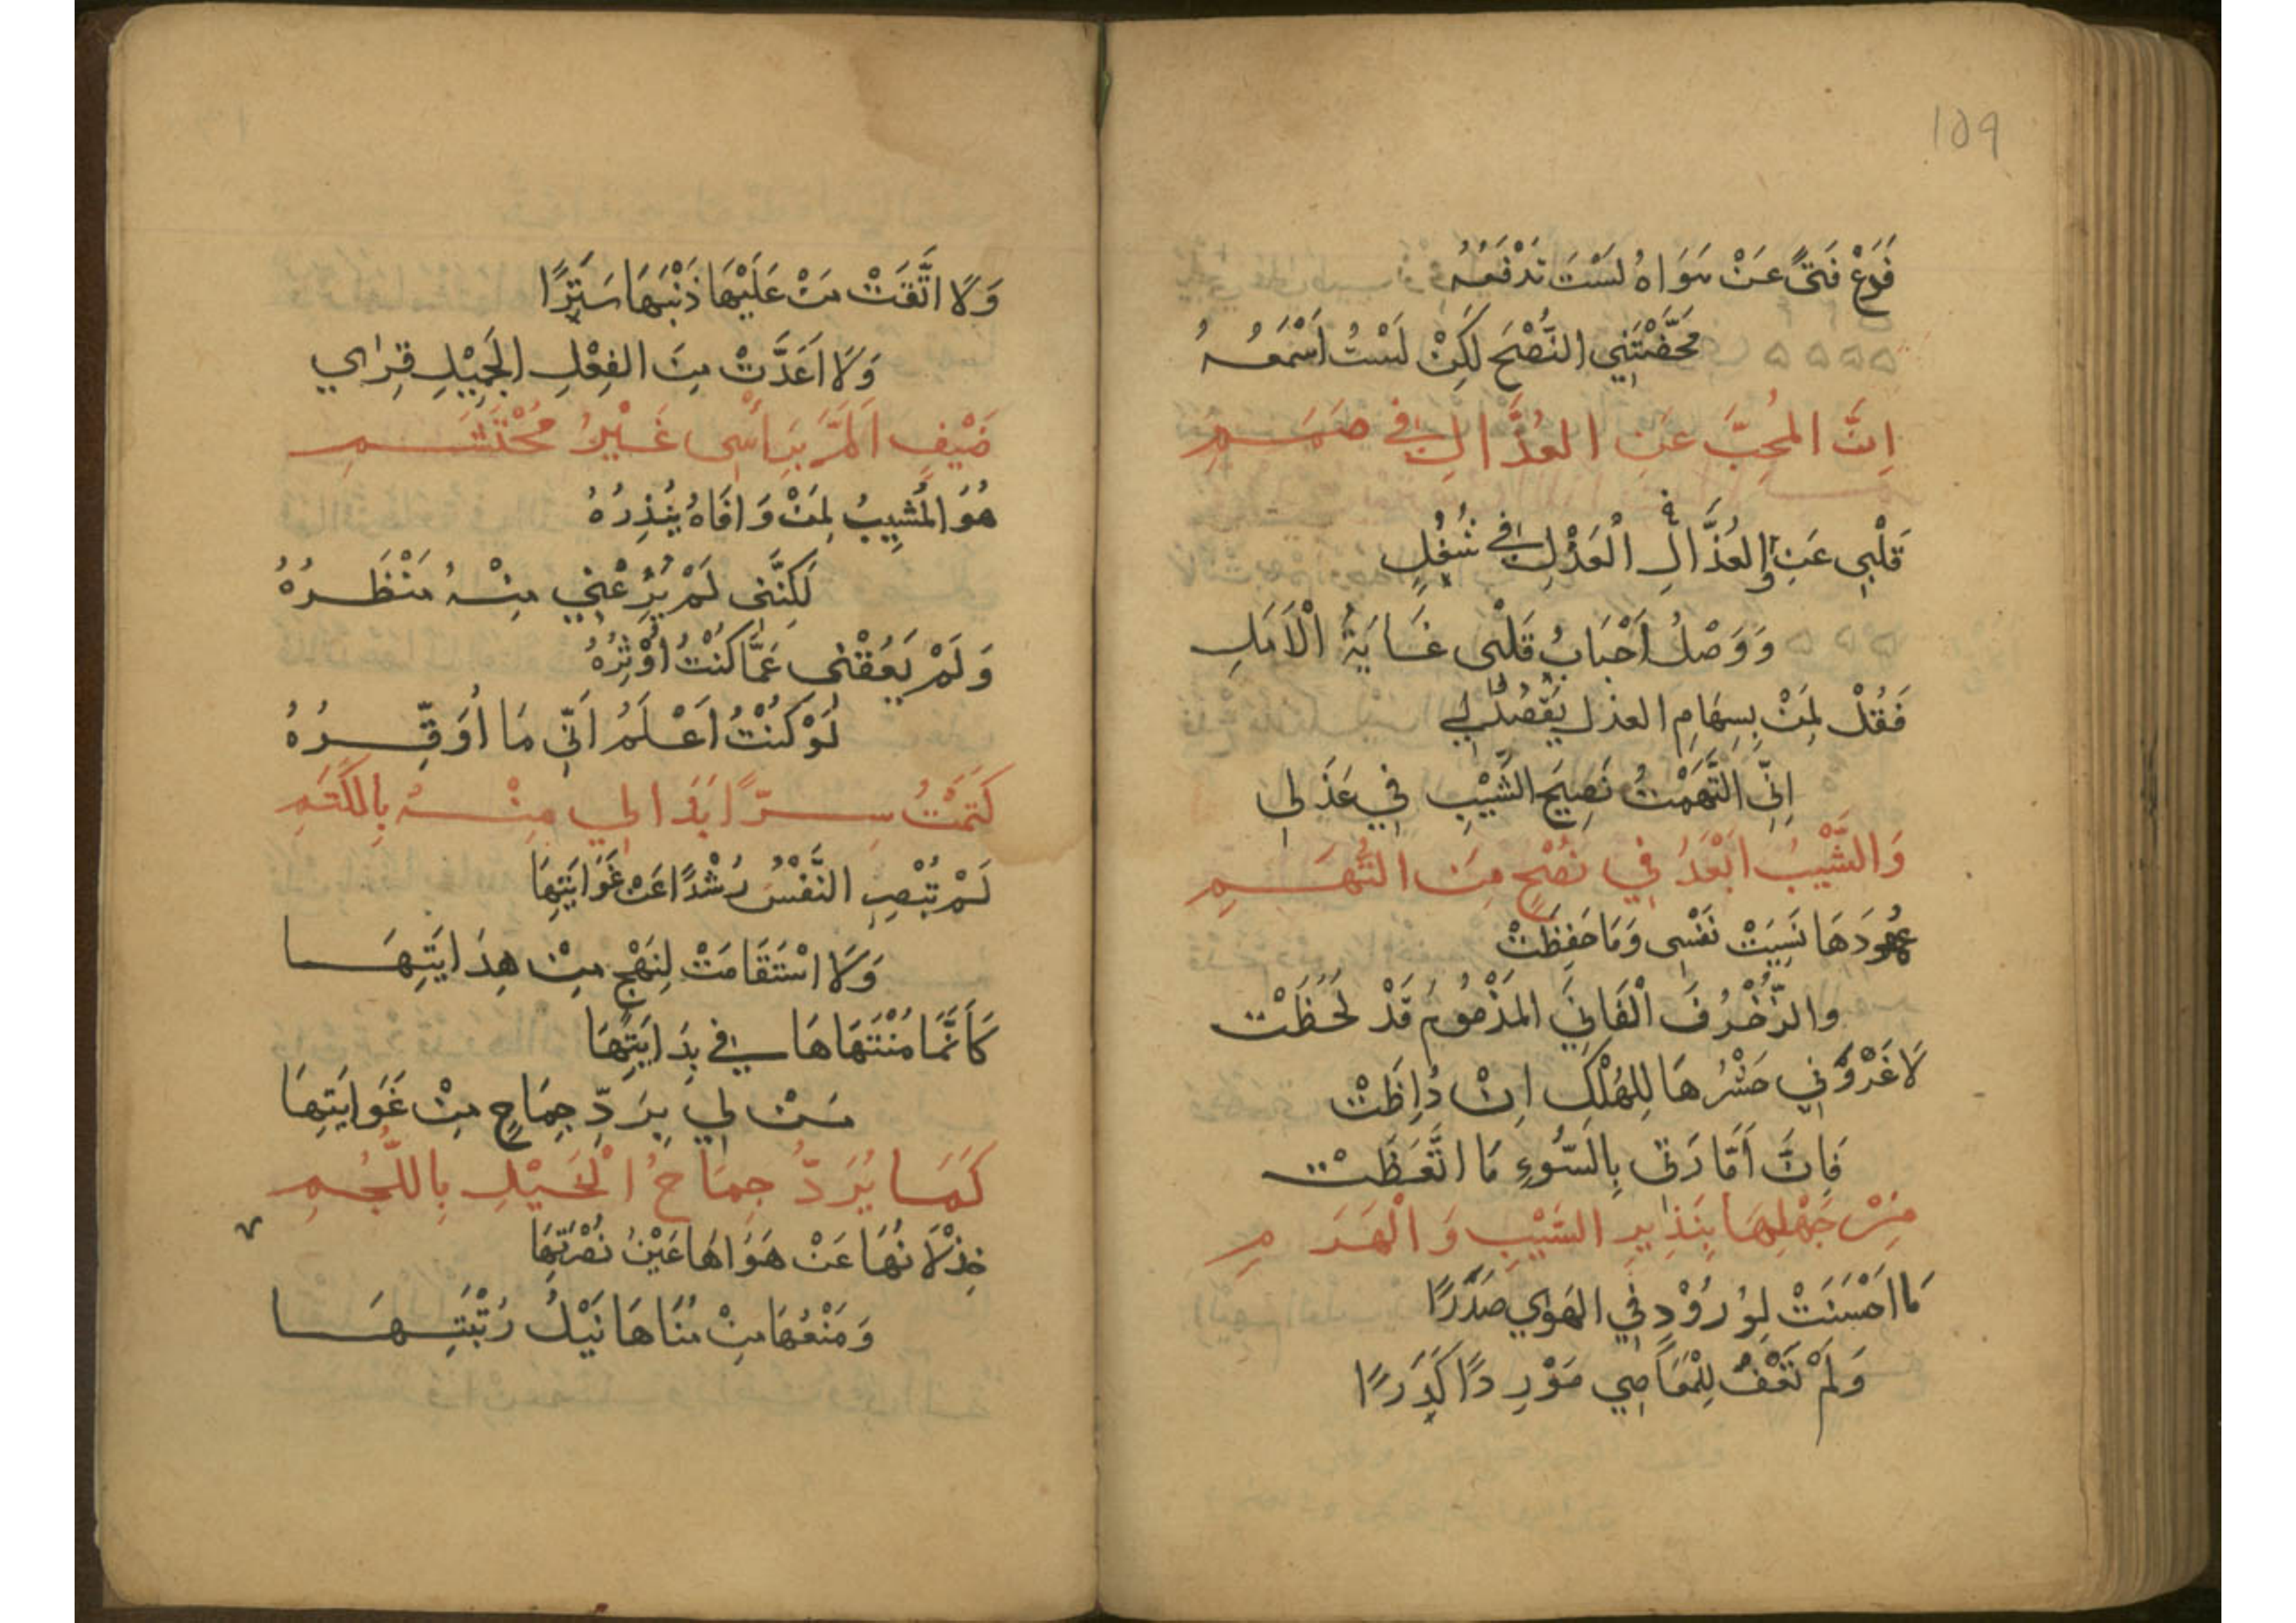 109
فَدَعْ فَتًى عَنْ هَوَاهُ لَسْتَ تَدْفَعُهُ
مَحَّضْتَنِي النُّصْحَ لَكِنْ لَسْتُ اَسْمَعُهُ
اِنَّ المُحِبَّ عَنِ العُذَّالِ فِي صَمَمِ
قَلْبِي عَنِ العُذَّالِ الْعَذْلِ فِي شُغُلٍ
وَوَصْلُ اَحْبَابُ قَلْبِى غَايَةُ الْاَمَلِ
فَقُلْ لِمَنْ بِسِهَامِ العذل يَقْصُدُ لِي
اِنِّى اتَّهَمْتُ نَصِيحَ الشَّيْبِ فِي عَذَلِي
وَالشَّيْبُ اَبْعَدُ فِي نُصْحٍ مِنَ التُّهَمِ
عُهُودَهَا نَسِيَتْ نَفْسِى وَمَا حَفِظَتْ
والزُّخْرُفَ الْفَانِيَ المَذْمُومُ قَدْ لَحَظَتْ
لَا غَرْوَ فِي حَشْرُهَا لِلهُلْكِ اِنْ
فَاِنَّ اَمَّارَتِى بِالسُّوءِ مَا اتَّعَظَتْ
مِنْ جَهْلِهَا بِنَذِيرِ الشَّيْبِ وَالْهَرَمِ
مَا اَحْسَنَتْ لِوُرُوْدٍ فِي الهَوٰي صَدَرًا
وَلَمْ تَعْفُ لِلْمَعَاصِي مَوْرِدًا كَدِرًا
وَلَا اتَّقَتْ مَنْ عَلَيْهَا ذَنْبَهَا سَتَرًا
وَلَا اَعَدَّتْ مِنَ الفِعْلِ الجَمِيْلِ قِرٰاي
ضَيْفٍ اَلَمَّ بِرَأْسِى غَيْرُ مُحْتَشَمِ
هُوَ المُشِيبُ لِمَنْ وَافَاهُ يُنْذِرُهُ
لَكِنَّنِى لَمْ يُرِعْنِي مِنْهُ مَنْظَرُهُ
وَلَمْ يَعُقْنِى عَمَّا كُنْتُ اُوْثِرُهُ
لَوْ كُنْتُ اَعْلَمُ اَنِّي مَا اُوَقِّرُهُ
كَتَمْتُ سِرًّا بَدَا لِي مِنْهُ بِالكَتَمِ
لَمْ تُبْصِرِ النَّفْسُ رُشْدًا عَنْ غَوَايَتِهَا
وَلَا اسْتَقَامَتْ لِنَهْجٍ مِنْ هِدَايَتِهَا
كَأَنَّمَا مُنْتَهَاهَا فِي بِدَايَتِهَا
مَنْ لِي بِرَدِّ جِمَاحٍ مِنْ غَوَايَتِهَا
كَمَا يُرَدُّ جِمَاحُ الْخَيْلِ بِاللُّجُمِ
خِذْلَانُهَا عَنْ هَوَاهَا عَيْنُ نُصْرَتِهَا
وَمَنْعُهَا مِنْ مُنَاهَا نَيْلُ رُتْبَتِهَا